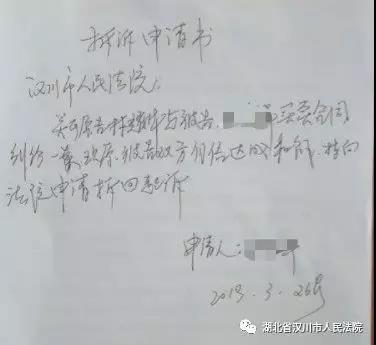 撤诉申请书
汉川市人民法院:
关于原告林建华与被告 买卖合同
纠纷一案,现原、被告双方自愿达成和解,特向
法院申请撤回起诉
申请人:
2019.3.26号
湖北省汉川市人民法院